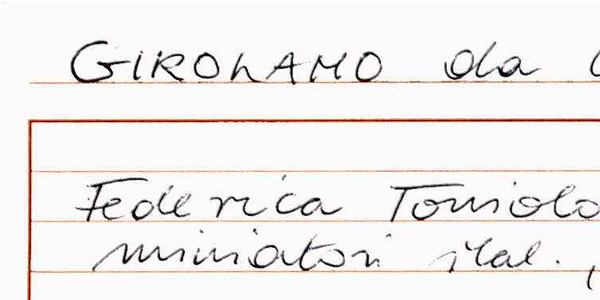 GIROLAMO da
Federica Toniolo
miniatori ital.